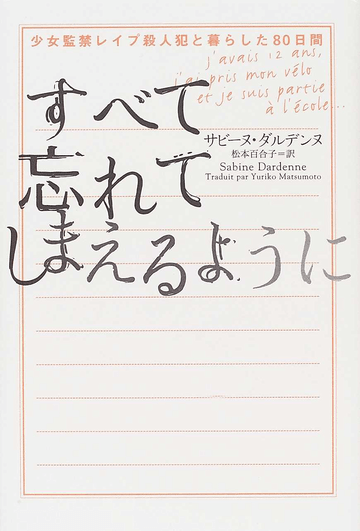 少女監禁レイプ殺人犯と暮らした80日間
j'avais 12 ans,
j'ai pris mon vélo
et je suis partie
à l'école...
すべて
忘れて
しまえるように
サビーヌ・ダルデンヌ
松本百合子=訳
Sabine Dardenne
Traduit par Yuriko Matsumoto